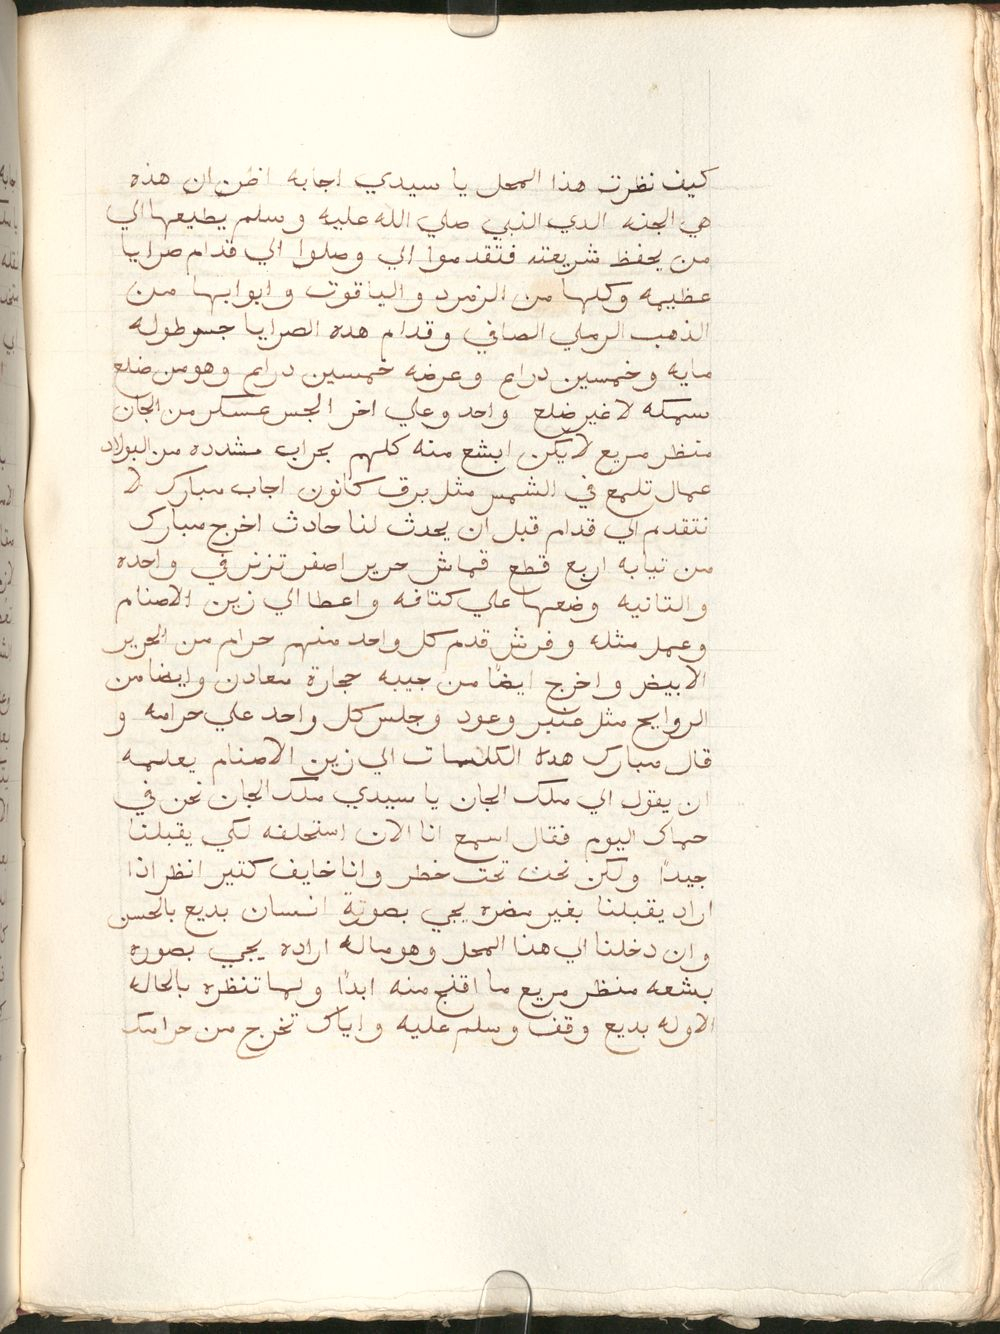 كيف نظرت هذا المحل يا سيدي اجابه اظن ان هذه
هي الجنه الدي النبي صلي الله عليه وسلم يطيعها الي
من يحفظ شريعته فتقدموا الي وصلوا الي قدام صرايا
عظيمه وكلها من الزمرد والياقوت وابوابها من
الذهب الرملي الصافي وقدام هده الصرايا جسر طوله
مايه وخمسين درايم وعرضه خمسين درايم وهو من ضلع
سمكه لا غير ضلع واحد وعلي اخر الجسر عسكر من الجان
منظر مريع لا يكن ابشع منه كلهم بحراب مشدده من البولاد
عمال تلمع في الشمس مثل برق كانون اجاب مبارك لا
نتقدم الي قدام قبل ان يحدث لنا حادث اخرج مبارك
من تيابه اربع قطع قماش حرير اصفر تزنر في واحده
والتانيه وضعها علي كتافه واعطا الي زين الاصنام
وعمل مثله وفرش قدم كل واحد منهم حرام من الحرير
الابيض واخرج ايضًا من جيبه حجارة معادن وايضا من
الروايح مثل عنبر وعود وجلس كل واحد علي حرامه و
قال مبارك هده الكلامات الي زين الاصنام يعلمه
ان يقول الي ملك الجان يا سيدي ملك الجان نحن في
حماك اليوم فقال اسمع انا الان استحلفه لكي يقبلنا
جيدًا ولكن نحن تحت خطر وانا خايف كتير انظر اذا
اراد يقبلنا بغير مضره يجي بصورة انسان بديع بالحسن
وان دخلنا الي هنا المحل وهو ماله اراده يجي بصوره
بشعه منظر مريع ما اقبح منه ابدًا ولما تنظره بالحاله
الاوله بديع وقف وسلم عليه واياك تخرج من حرامك